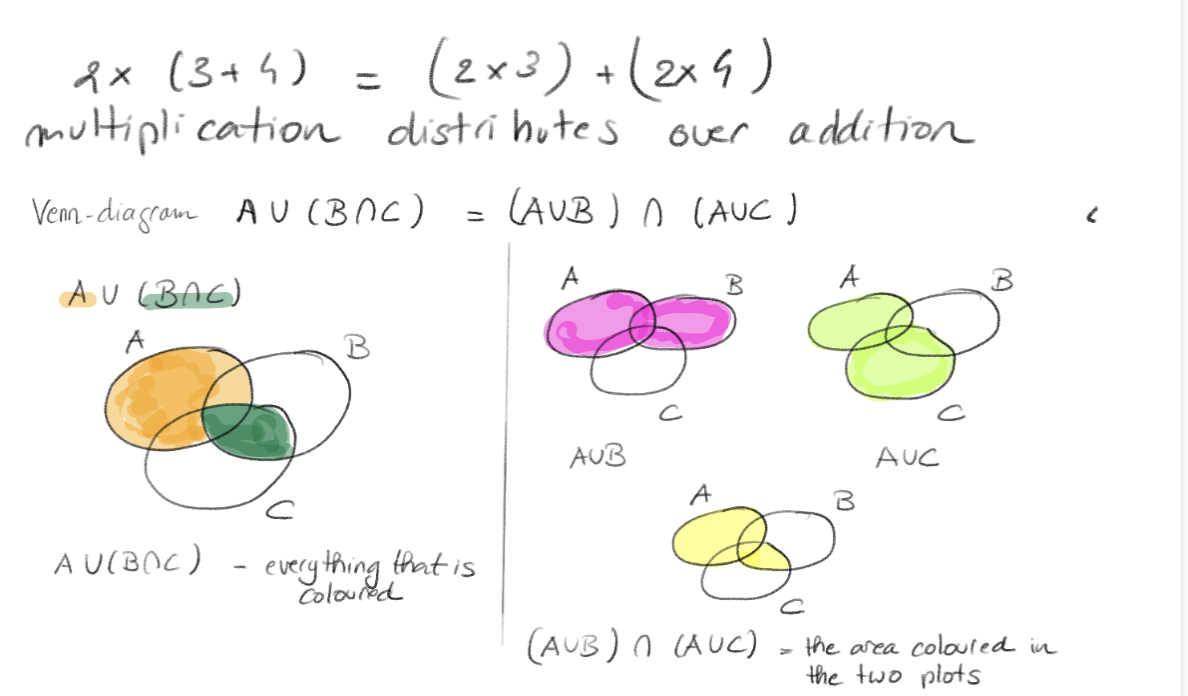 2 x (3+4) = (2x3) + (2x4)
multiplication distributes over addition
Venn-diagram A ∪ (B∩C) = (A∪B) ∩ (A∪C)
A ∪ (B∩C)
A
B
C
A ∪(B∩C) - everything that is
coloured
A
B
C
A∪B
A
B
C
A∪C
A
B
C
(A∪B) ∩ (A∪C) = the area coloured in
the two plots